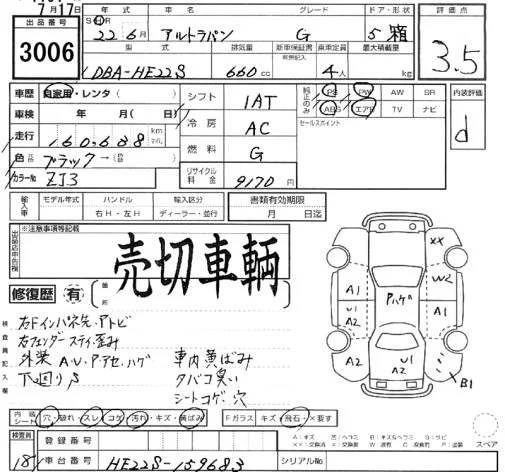 7月17日
出品番号
3006
年式 車名 グレード ドア・形状 評価点
22年6月 アルトラパン G 5 箱
3.5
型式 排気量 新車保証書 乗車定員 最大積載量
DBA-HE22S 660cc 4人 kg
車歴 自家用・レンタ( )
車検 年 月( 日)
走行 160,608 km
色 ブラック→( )
カラーNo ZJ3
シフト 1AT
冷房 AC
燃料 G
リサイクル料金 9170円
純正のみ PS PW AW SR
ABS エアB TV ナビ
セールスポイント
内装評価
d
輸入車 モデル年式 ハンドル 輸入区分
右H・左H ディーラー・並行
書類有効期限
月 日迄
※注意事項等記載
売切車輌
修復歴 有 箇所
検査員記入欄
右Fインパネ先・アトビ
右フェンダーステイ歪み
外装 A・U・P・アセ・ハゲ
下回りS
車内黄ばみ
タバコ臭い
シートコゲ・穴
XX
A1
W2
Pハゲ
U1
A2
A1
U1
A2
A2
B1
内装シート 穴・破れ・スレ・コゲ・汚れ・キズ・黄ばみ
Fガラス キズ・飛石・×要す
スペア
検査員
18
登録番号
車台番号 HE22S-159683
シリアルNo